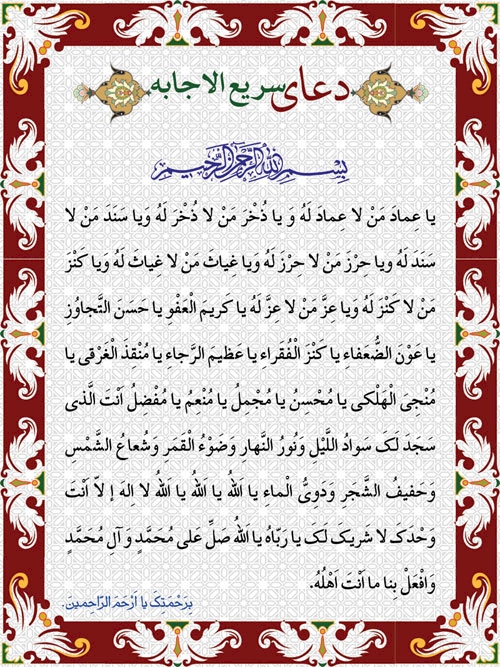 دعای سریع الاجابه
بِسْمِ اللهِ الرَّحْمنِ الرَّحيمِ
يا عِمادَ مَنْ لا عِمادَ لَهُ وَ يا ذُخْرَ مَنْ لا ذُخْرَ لَهُ وَيا سَنَدَ مَنْ لا
سَنَدَ لَهُ ويا حِرْزَ مَنْ لا حِرْزَ لَهُ وَيا غِياثَ مَنْ لا غِياثَ لَهُ وَيا كَنْزَ
مَنْ لا كَنْزَ لَهُ وَيا عِزَّ مَنْ لا عِزَّ لَهُ يا كَريمَ الْعَفْوِ يا حَسَنَ التَّجاوُزِ
يا عَوْنَ الضُّعَفاءِ يا كَنْزَ الْفُقَراءِ يا عَظيمَ الرَّجاءِ يا مُنْقِذَ الْغَرْقى يا
مُنْجِىَ الْهَلْكى يا مُحْسِنُ يا مُجْمِلُ يا مُنْعِمُ يا مُفْضِلُ اَنْتَ الَّذى
سَجَدَ لَکَ سَوادُ اللَّيْلِ وَنُورُ النَّهارِ وَضَوْءُ الْقَمَرِ وَشُعاعُ الشَّمْسِ
وَحَفيفُ الشَّجَرِ وَدَوِىُّ الْماءِ يا اَللهُ يا اَللهُ يا اَللهُ لا اِلهَ اِلاّ اَنْتَ
وَحْدَکَ لا شَريکَ لَکَ يا رَبّاهُ يا اَللهُ صَلِّ عَلى مُحَمَّدٍ وَ آلِ مُحَمَّدٍ
وَافْعَلْ بِنا ما اَنْتَ اَهْلُهُ.
بِرَحْمَتِکَ يا اَرْحَمَ الرّاحِمينَ.